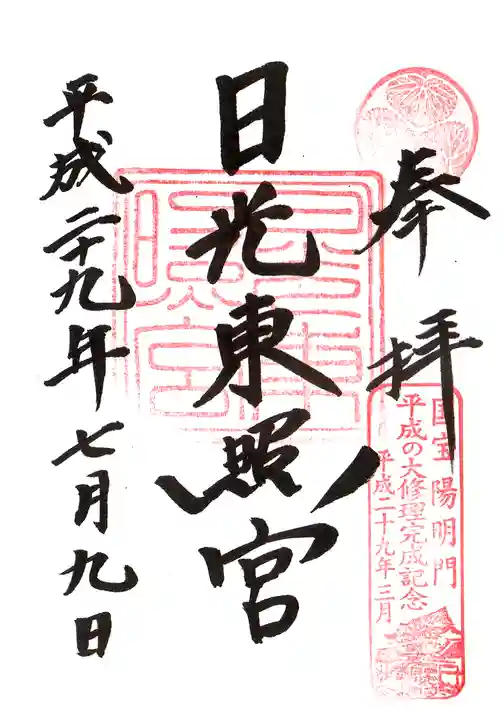 奉拝
国宝 陽明門
平成の大修理完成記念
平成二十九年三月
日光東照宮
平成二十九年七月九日